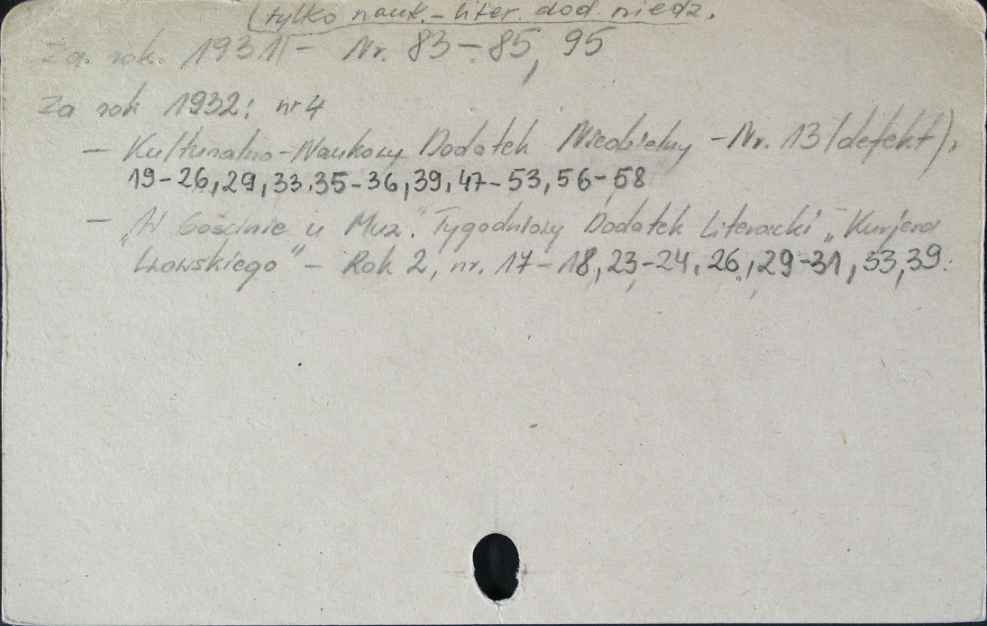 (tylko nauk.-liter. dod. niedz.
Za rok. 1931 - Nr. 83-85, 95
Za rok 1932: nr 4
- Kulturalno-Naukowy Dodatek Niedzielny - Nr. 13 (defekt),
19-26, 29, 33.35-36, 39, 47-53, 56-58
- „W Gościnie u Muz." Tygodniowy Dodatek Literacki „Kurjera
Lwowskiego" - Rok 2, nr. 17-18, 23-24, 26, 29-31, 33, 39.